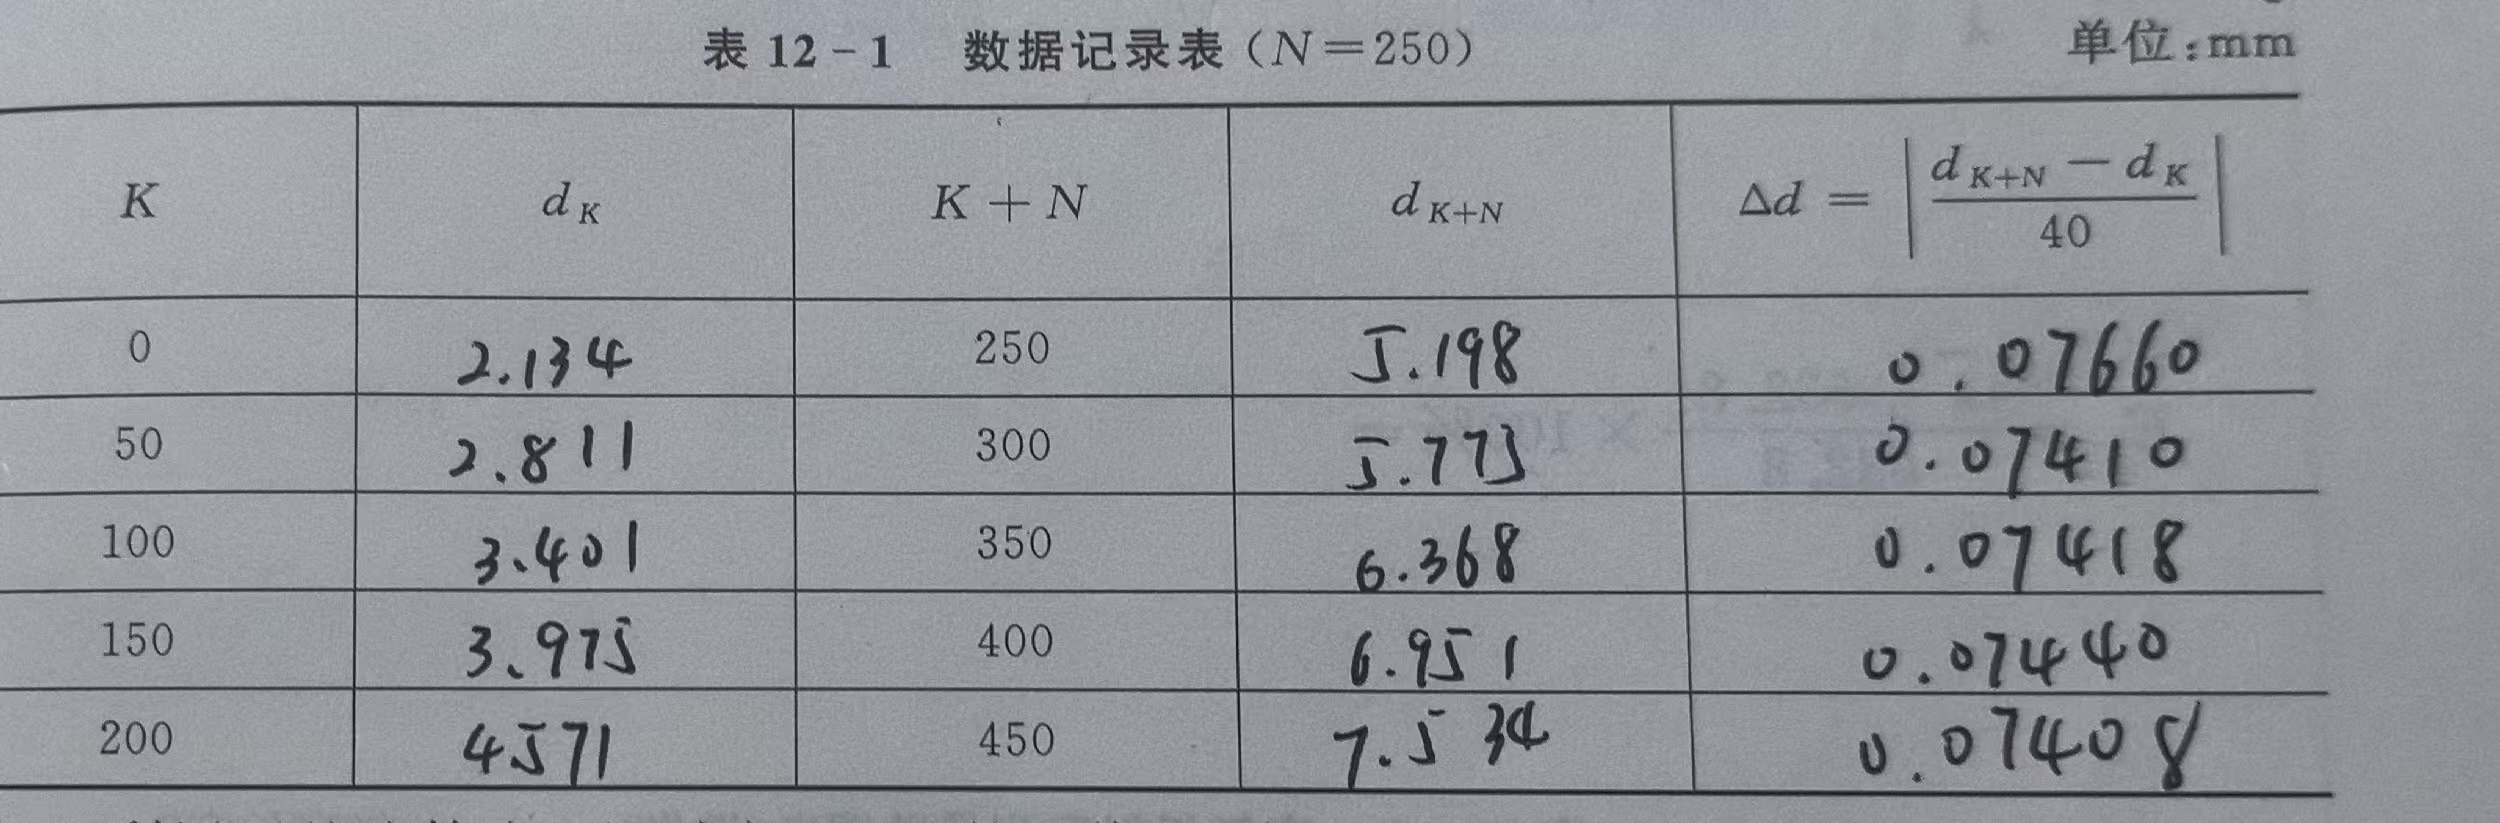 表 12-1 数据记录表(N=250) 单位:mm
K d_K K+N d_{K+N} Δd = |(d_{K+N} - d_K)/40|
0 2.134 250 5.198 0.07660
50 2.811 300 5.775 0.07410
100 3.401 350 6.368 0.07418
150 3.975 400 6.951 0.07440
200 4571 450 7.534 0.07408